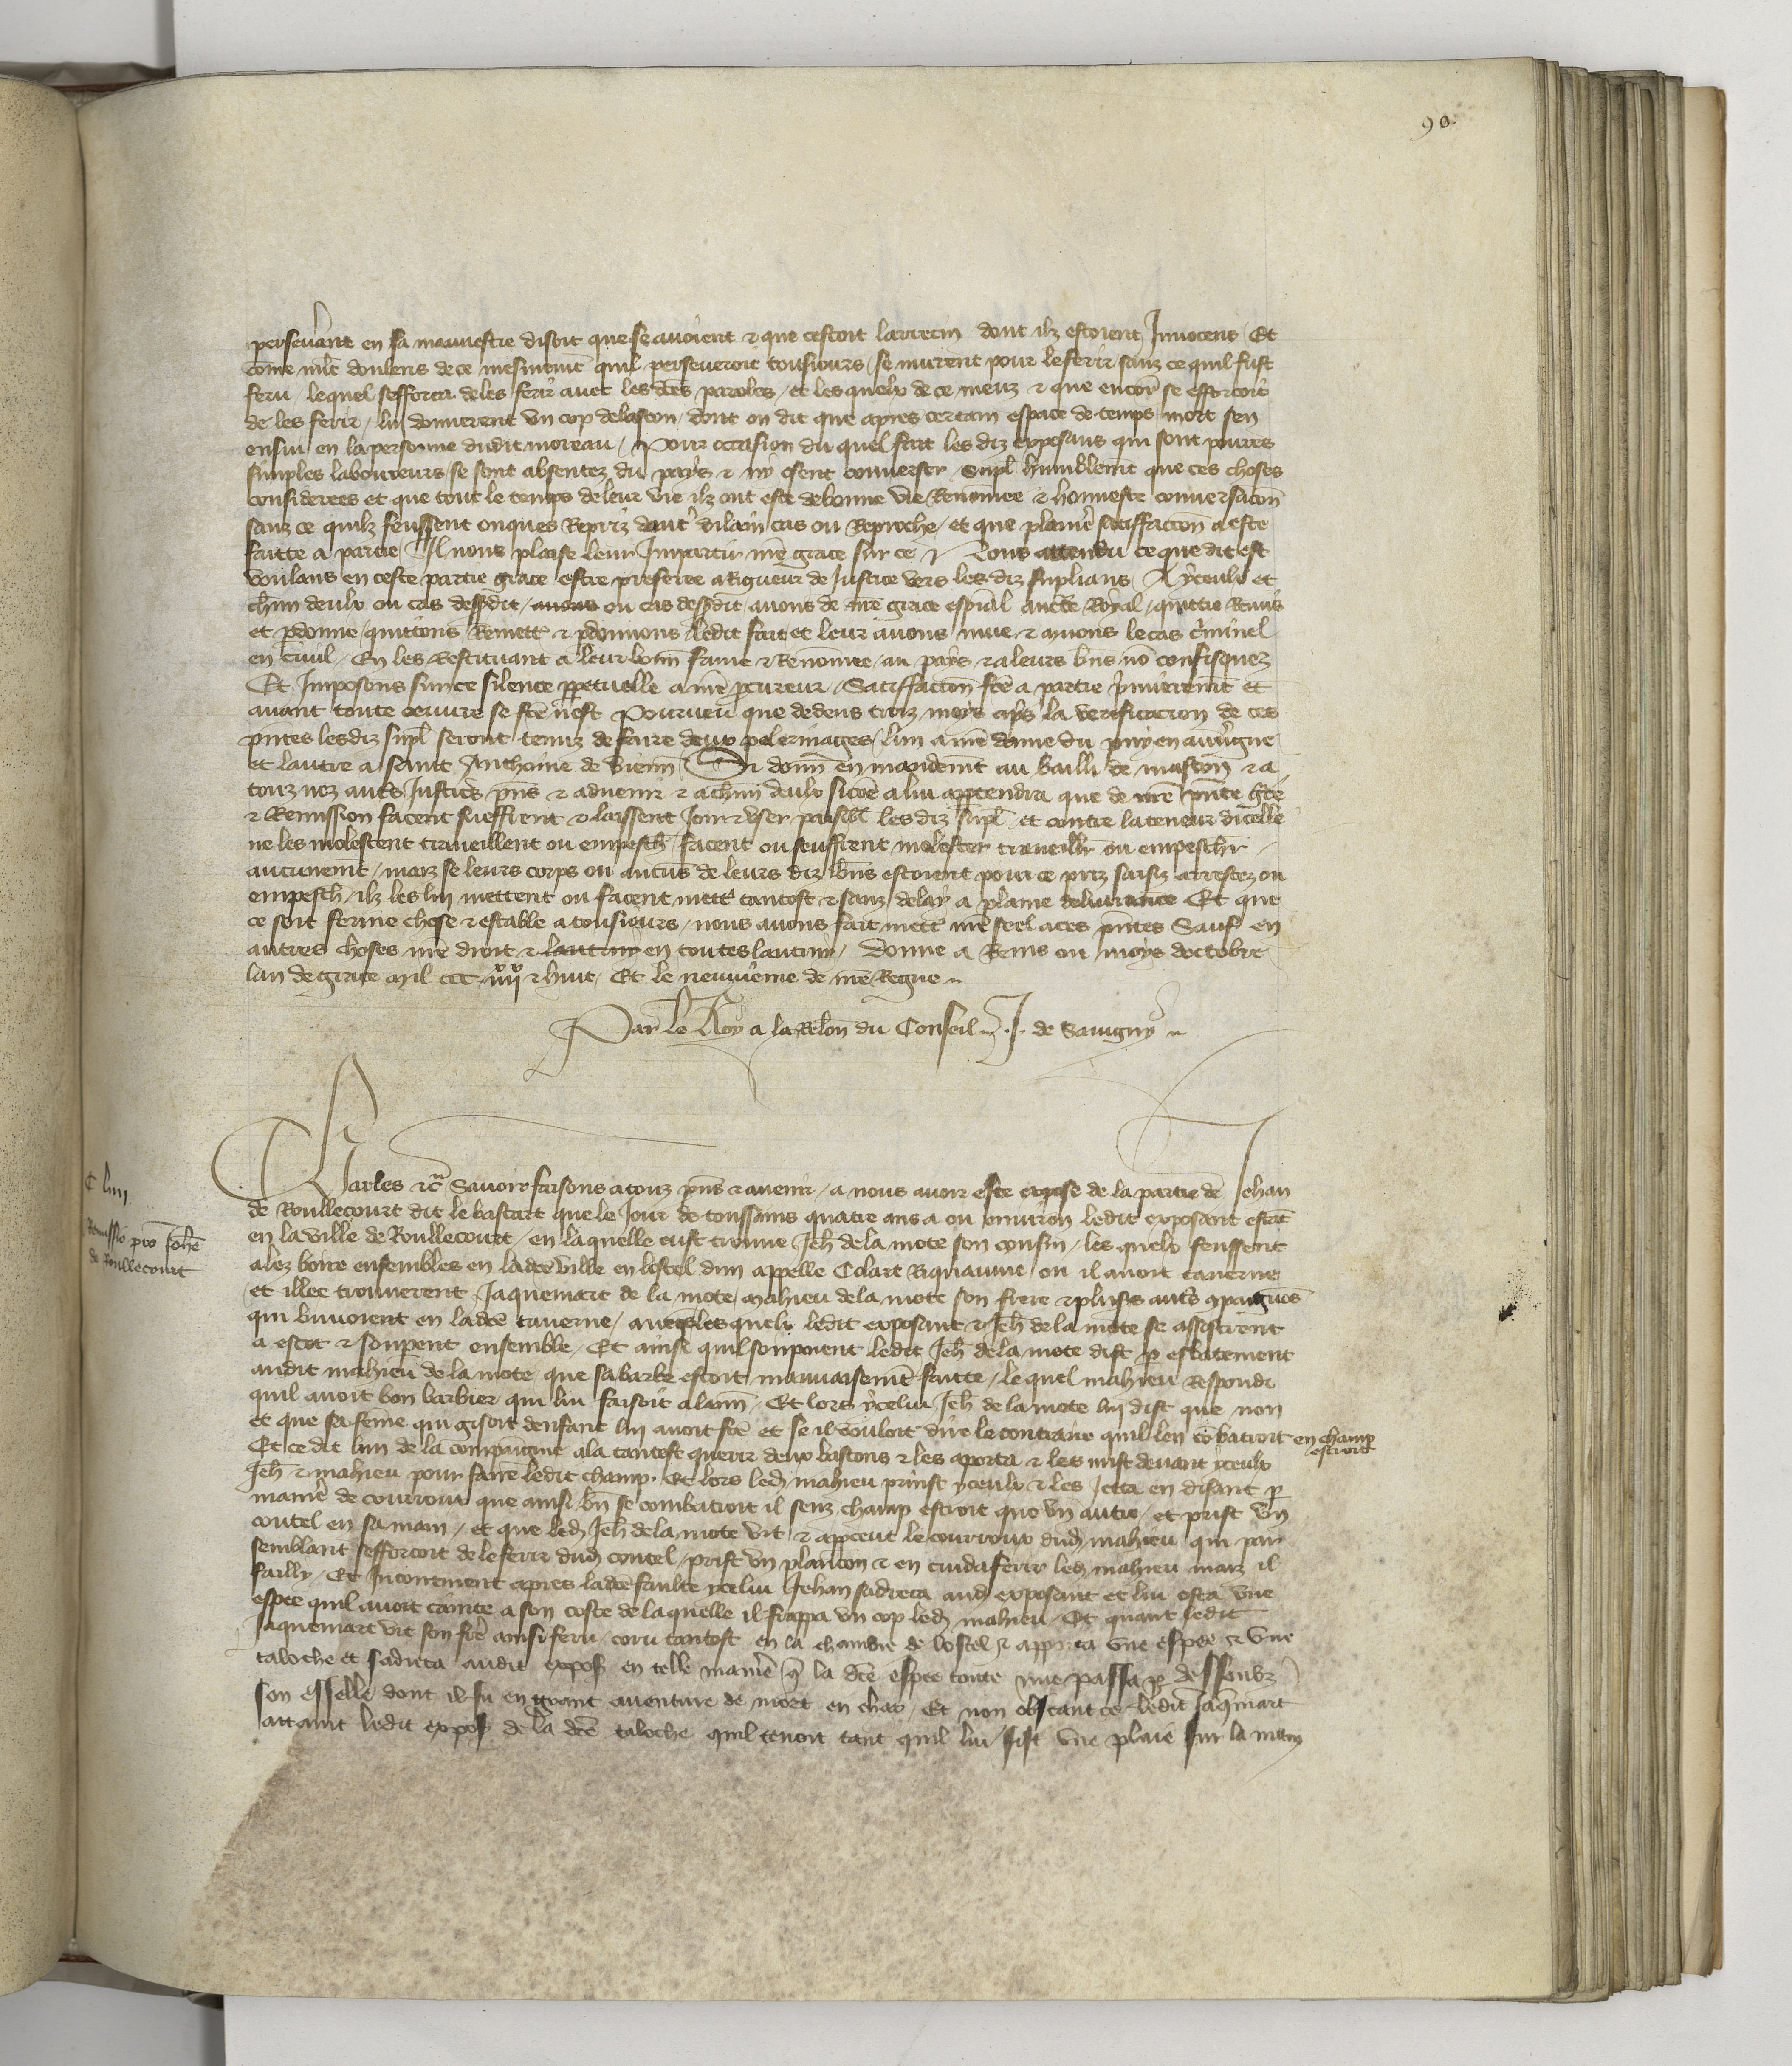 90
perseverant en sa mauvestie disoit que se avoient & que cestoit larrecin dont ilz estoient Innocens / Et
come mlt doulens de ce quil perseveroit tousiours / se murent pour le ferir sanz ce quil fust
feru / lequel sefforca de les ferir avec les dces paroles / et les quelx de ce meuz & que encor se efforcoit
de les ferir / lui donnerent un cop de baston / dont on dit que apres certain espace de temps mort sen
ensui en la personne dudit moreau / Pour occasion du quel fait les diz exposans qui sont povres
simples laboureurs se sont absentez du pays & ny osent converser / Supl humblemt que ces choses
considerees et que tout le temps de leur vie ilz ont este de bonne vie Renommee & honneste conversacon
sanz ce quilz feussent onques Repriz daut vilain cas ou Reproche / et que plaine satiffaccon a este
faitte a partie / Il nous plaise leur Impartir nre grace sur ce / Nous attendu ce que dit est
voulans en ceste partie grace estre preferee a Rigueur de Justice vers les diz suplians / A yceulx et
chun deulx ou cas dessdit / avons ou cas dessdit avons de nre grace espial aucte Royal / quittie Remis
et pdonne / quittons Remett & pdonnons ledit fait et leur avons mue & muons le cas criminel
en Civil / En les Restituant a leur bonn fame & Renommee / au pays & a leurs bns no confisquez
Et Imposons sur ce silence ppetuelle a nre pcureur / Satiffaccon fce a partie premieremt et
avant toute oeuvre se fce nest Pourveu que dedens troiz moys aps la verificacion de ces
pntes lesdiz supl seront tenuz de faire deux pelerinages / lun a nre dame du puy en auvergne
et lautre a saint Anthoine de Vienn / Si donn en mandemt au bailli de mascon & a
touz noz auts Justices pns & advenir & a chun deulx sicoe a lui apptendra que de nre pnte gce
& Remission facent sueffrent & laissent Joir & user paisibl les diz supl / et contre la teneur dicelle
ne les molestent traveillent ou empesch / facent ou seuffrent molester traveillr ou empeschr
aucunemt / maiz se leurs corps ou aucuns de leurs diz bns estoient pour ce priz saisiz arrestez ou
empesch / ilz les lui mettent ou facent mett tantost & sanz delay a plaine delivrance Et que
ce soit ferme chose & estable a tousiours / nous avons fait mett nre seel a ces pntes Sauf en
autres choses nre droit & lautruy en toutes lautruy / Donne a Reins ou moys doctobre
lan de grace mil ccc iiii xx & huit / Et le neuvieme de nre Regne
Par le Roy a la Relon du Conseil J. de Savigny
C liiii
Remissio pro Johe
de Roullecourt
Charles &c Savoir faisons a touz pns & avenir / a nous avoir este expose de la partie de Jehan
de Roullecourt dit le bastart que le Jour de toussains quatre ans a ou environ ledit exposant estat
en la ville de Roullecourt / en laquelle eust trouve Jeh de la mote son cousin / les quelx feussent
alez boire ensembles en ladce ville en lostel dun appelle Colart / ou il avoit taverne
et illec trouverent Jaquemart de la mote mahieu de la mote son frere & plusrs auts compaignons
qui buvoient en ladce taverne / avec lesquelx ledit exposant & Jeh de la mote se assistrent
a escot & soupent ensemble / Et ainsi quil soupoient ledit Jeh de la mote dist p esbatement
audit mahieu de la mote / que sa barbe estoit mauvaisemt faitte / le quel mahieu Respondi
quil avoit bon barbier qui lui faisoit Et lors ycelui Jeh de la mote lui dist que non
et que sa feme qui gisoit denfant lui avoit fce et se il vouloit dire le contraire quil len combatroit en champ
estroit
Et ce dit lun de la compaignie ala tantost querir deux bastons & les aporta & les mist devant yceulx
Jeh & mahieu pour faire ledit champ. Et lors led mahieu prinst yceulx & les Jetta en disant p
maniere de courroux que aussi bn se combatroit il senz champ estroit que un autre / et prist un
coutel en sa main / et que led Jeh de la mote vit & appceut le courroux dud mahieu qui par
semblant sefforcoit de le ferir dud coutel / prist un plancon & en cuida ferir led mahieu maiz il
failly / Et Incontinent apres ladce faulte ycelui Jehan sadreca aud exposant et lui osta une
espee quil avoit cainte a son coste de laquelle il frappa un cop led mahieu / Et quant ledit
Jaquemart vit son frere ainsi feru / coru tantost en la chambre de lostel & apporta une espee & une
taloche et sadreca audit expos en telle maniere q la dce espee toute nue passa p dessoubz
son esselle dont il fu en grant aventure de mort en char / Et non obstant ce ledit Jaqmart
attaint ledit expos de la dce taloche quil tenoit tant quil lui fist une plaie sur la main